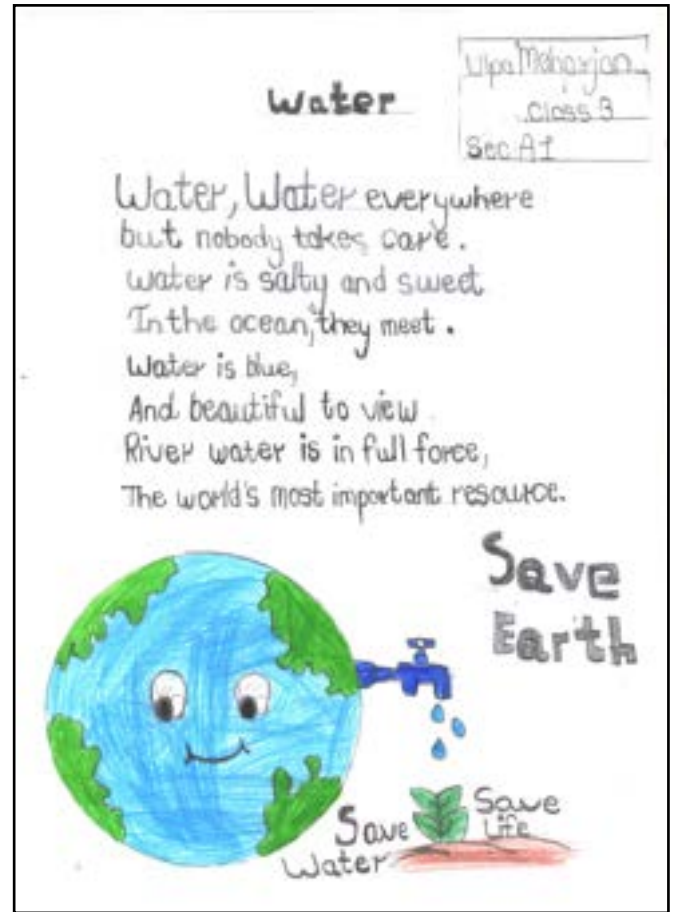 Water
Ulpa Maharjan
Class 3
Sec A1
Water, Water everywhere
but nobody takes care.
Water is salty and sweet
In the ocean, they meet.
Water is blue,
And beautiful to view
River water is in full force,
The world's most important resource.
Save
Earth
Save
Water
Save
Life